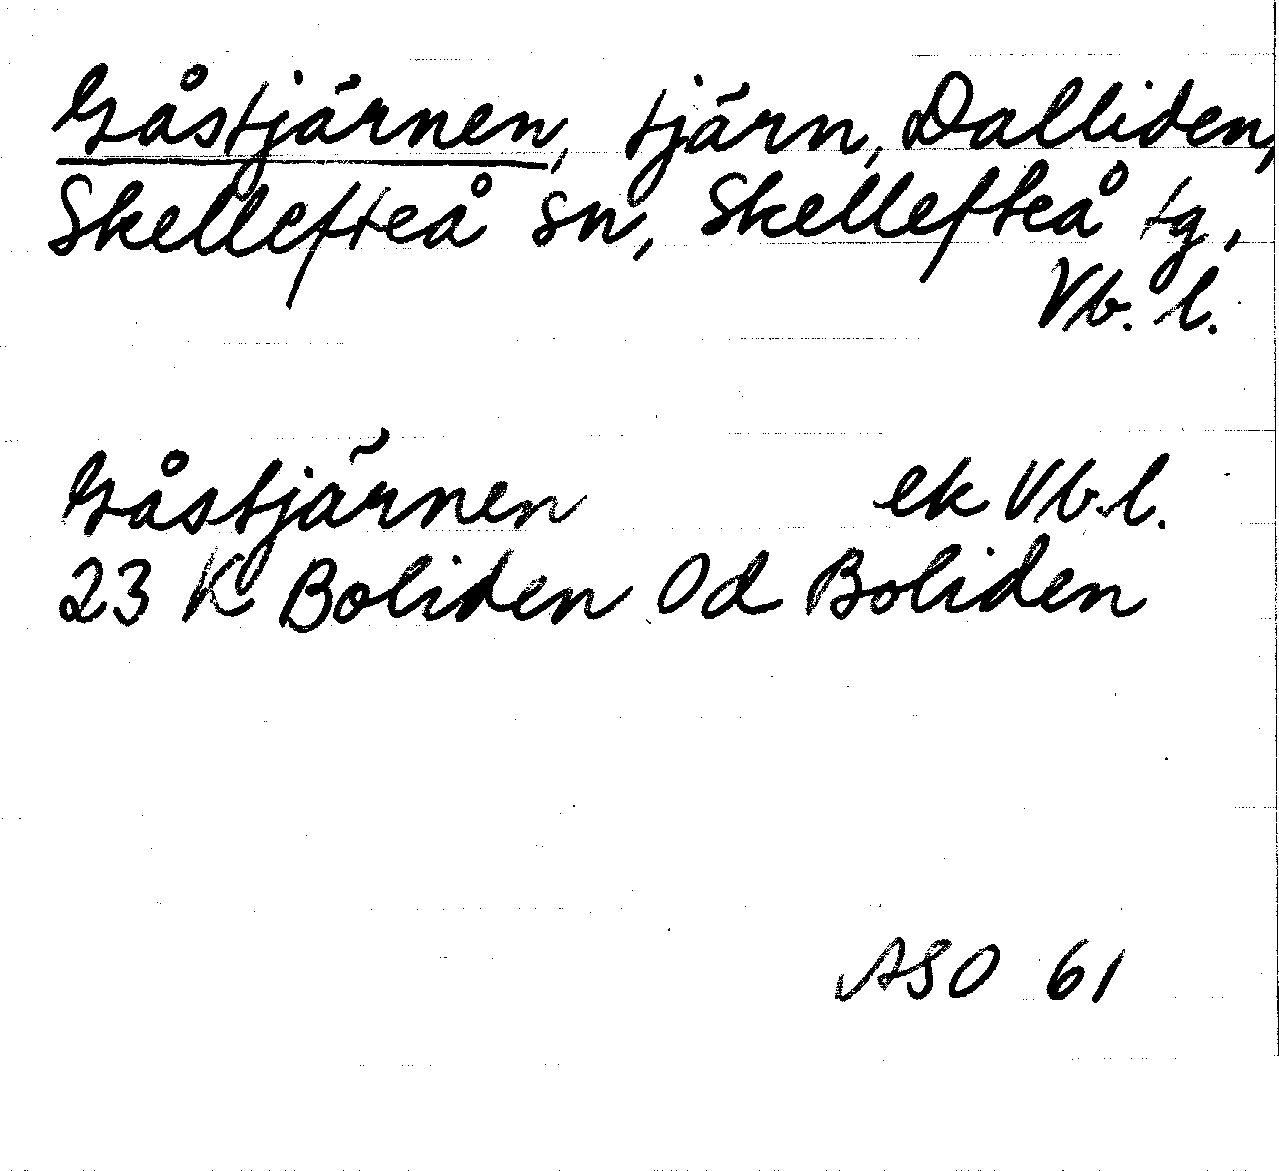 Gåstjärnen, tjärn, Dalliden,
Skellefteå sn, Skellefteå tg,
Vb. l.
Gåstjärnen ek Vb. l.
23 K Boliden Od Boliden
ASO 61